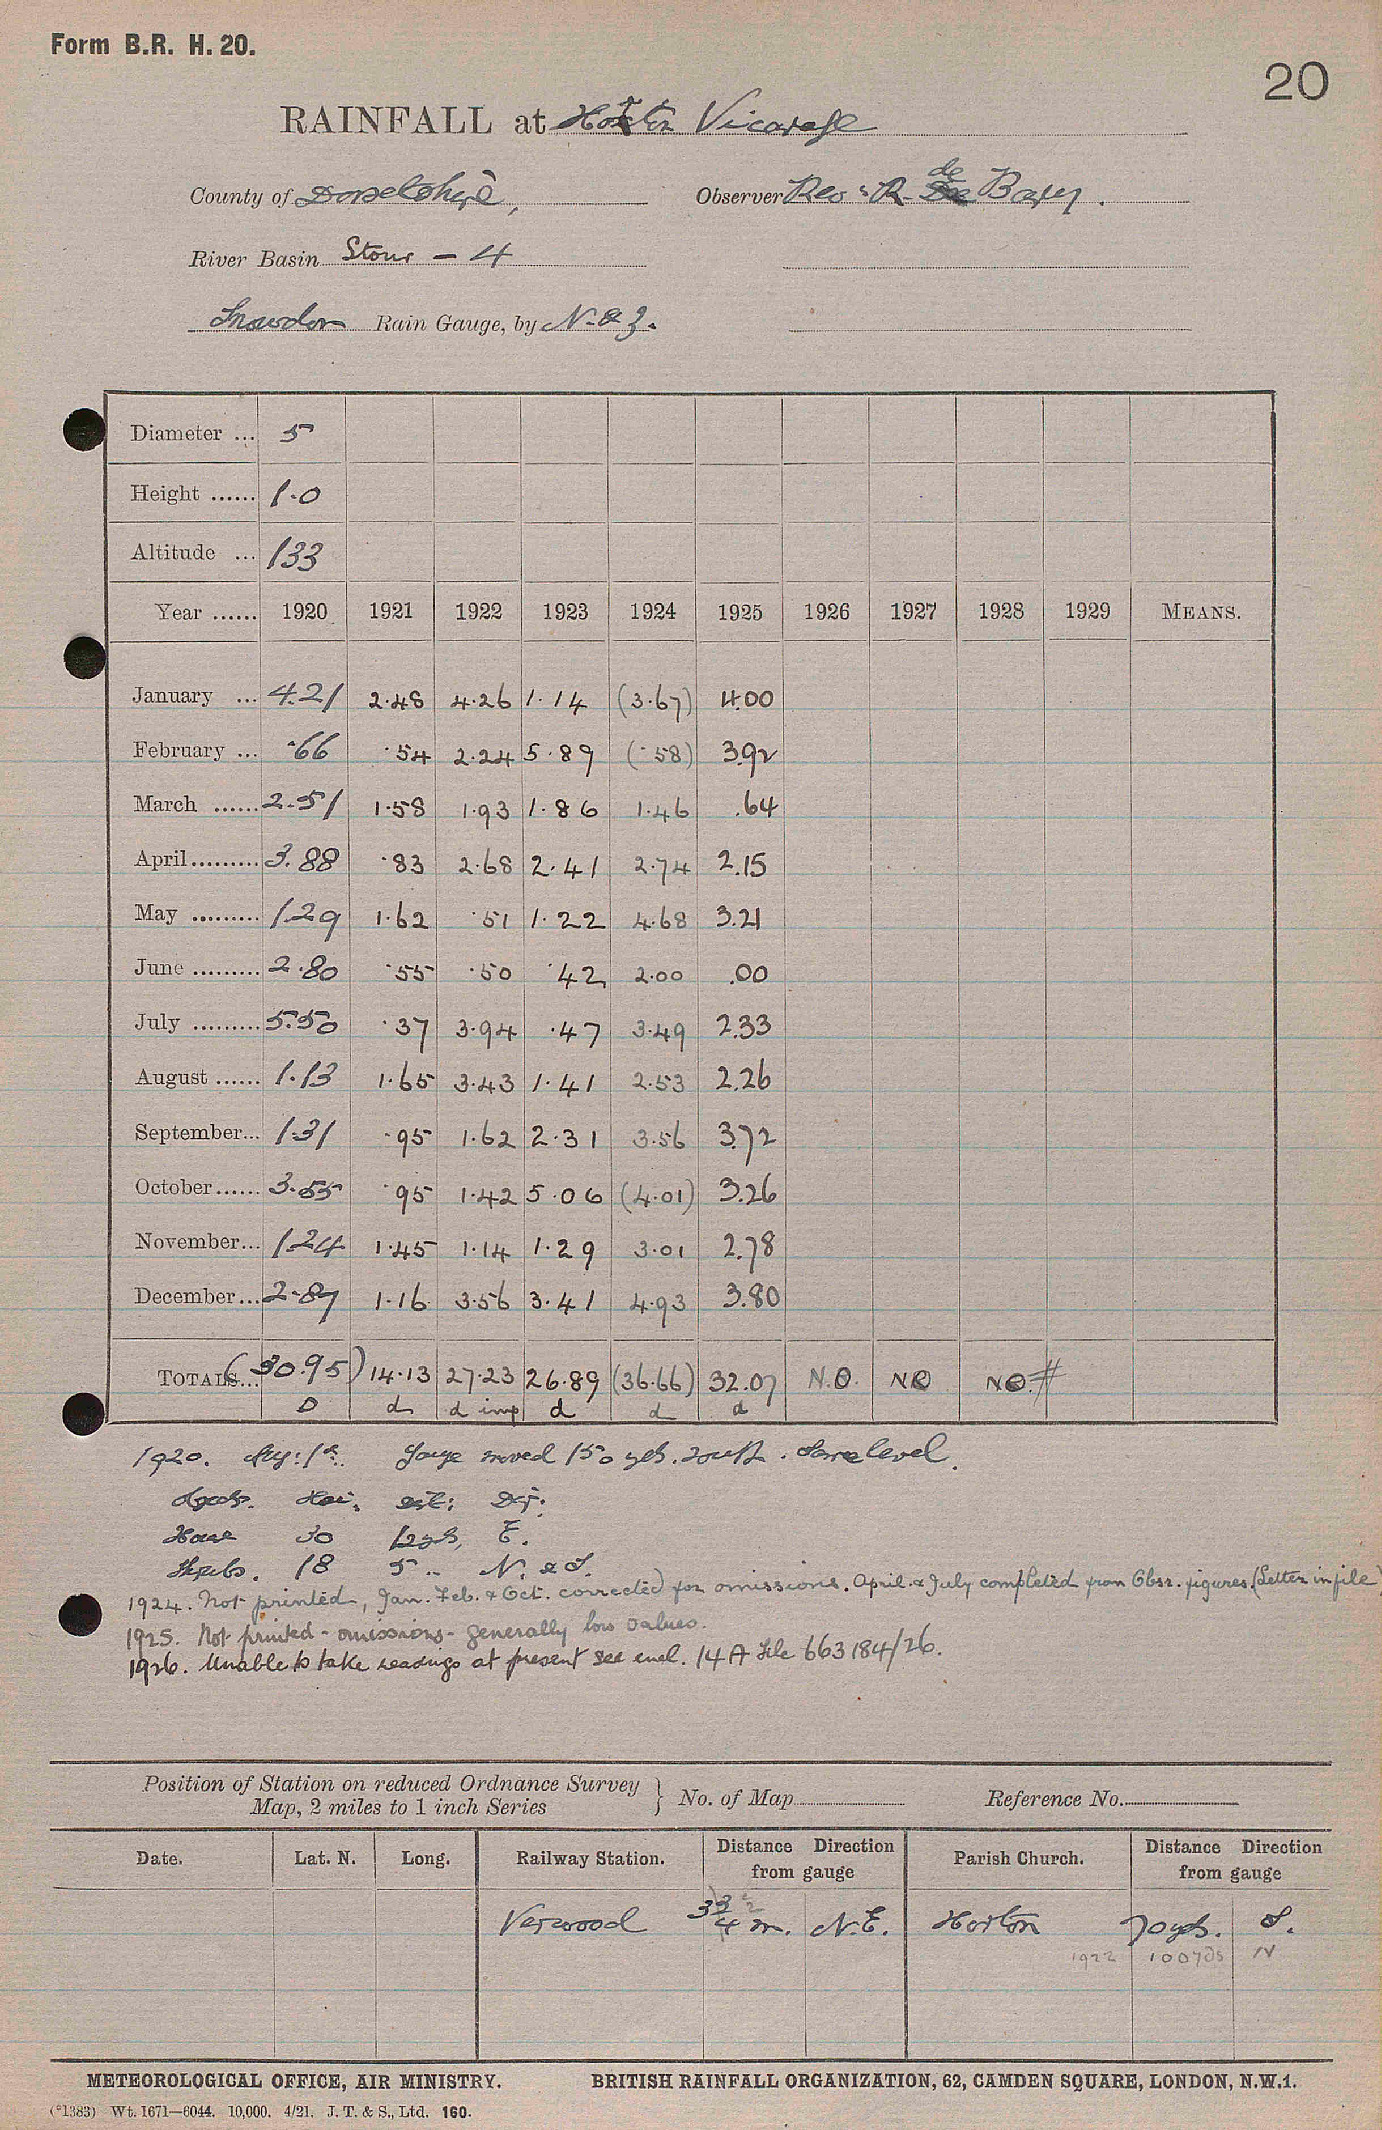 Form B.R. H. 20.
20
RAINFALL at Horton Vicarage
County of Dorsetshire, Observer Rev. R. de Bary.
River Basin Stour - 4
Snowdon Rain Gauge, by N. & Z.
Diameter ... 5
Height ...... 1.0
Altitude ... 133
Year ...... 1920 1921 1922 1923 1924 1925 1926 1927 1928 1929 MEANS.
January ... 4.21 2.48 4.26 1.14 (3.67) 4.00
February ... .66 .54 2.24 5.89 (.58) 3.92
March ...... 2.51 1.58 1.93 1.86 1.46 .64
April ......... 3.88 .83 2.68 2.41 2.74 2.15
May ......... 1.29 1.62 .51 1.22 4.68 3.21
June ......... 2.80 .55 .50 .42 2.00 .00
July ......... 5.50 .37 3.94 .47 3.49 2.33
August ...... 1.13 1.65 3.43 1.41 2.53 2.26
September... 1.31 .95 1.62 2.31 3.56 3.72
October ...... 3.55 .95 1.42 5.06 (4.01) 3.26
November... 1.24 1.45 1.14 1.29 3.01 2.78
December... 2.87 1.16 3.56 3.41 4.93 3.80
TOTALS... (30.95) 14.13 27.23 26.89 (36.66) 32.07 N.O. NO NO.
D d d imp d d d
1920. Gauge moved 150 yds. south. Same level.
Objects. Hei. dist: Dir:
House 30 12 yds, E.
Shrubs. 18 5 " N. & S.
1924. Not printed, Jan. Feb. & Oct. corrected for omissions. April & July completed from Obsr. figures. (Letter in file)
1925. Not printed - omissions - generally low values.
1926. Unable to take readings at present see encl. 14A File 663184/26.
Position of Station on reduced Ordnance Survey Map, 2 miles to 1 inch Series } No. of Map Reference No.
Date. Lat. N. Long. Railway Station. Distance Direction from gauge Parish Church. Distance Direction from gauge
Verwood m. N.E. Horton 70 yds. S.
1922 100 yds N
METEOROLOGICAL OFFICE, AIR MINISTRY. BRITISH RAINFALL ORGANIZATION, 62, CAMDEN SQUARE, LONDON, N.W.1.
(*1383) Wt. 1671—6044. 10,000. 4/21. J. T. & S., Ltd. 160.